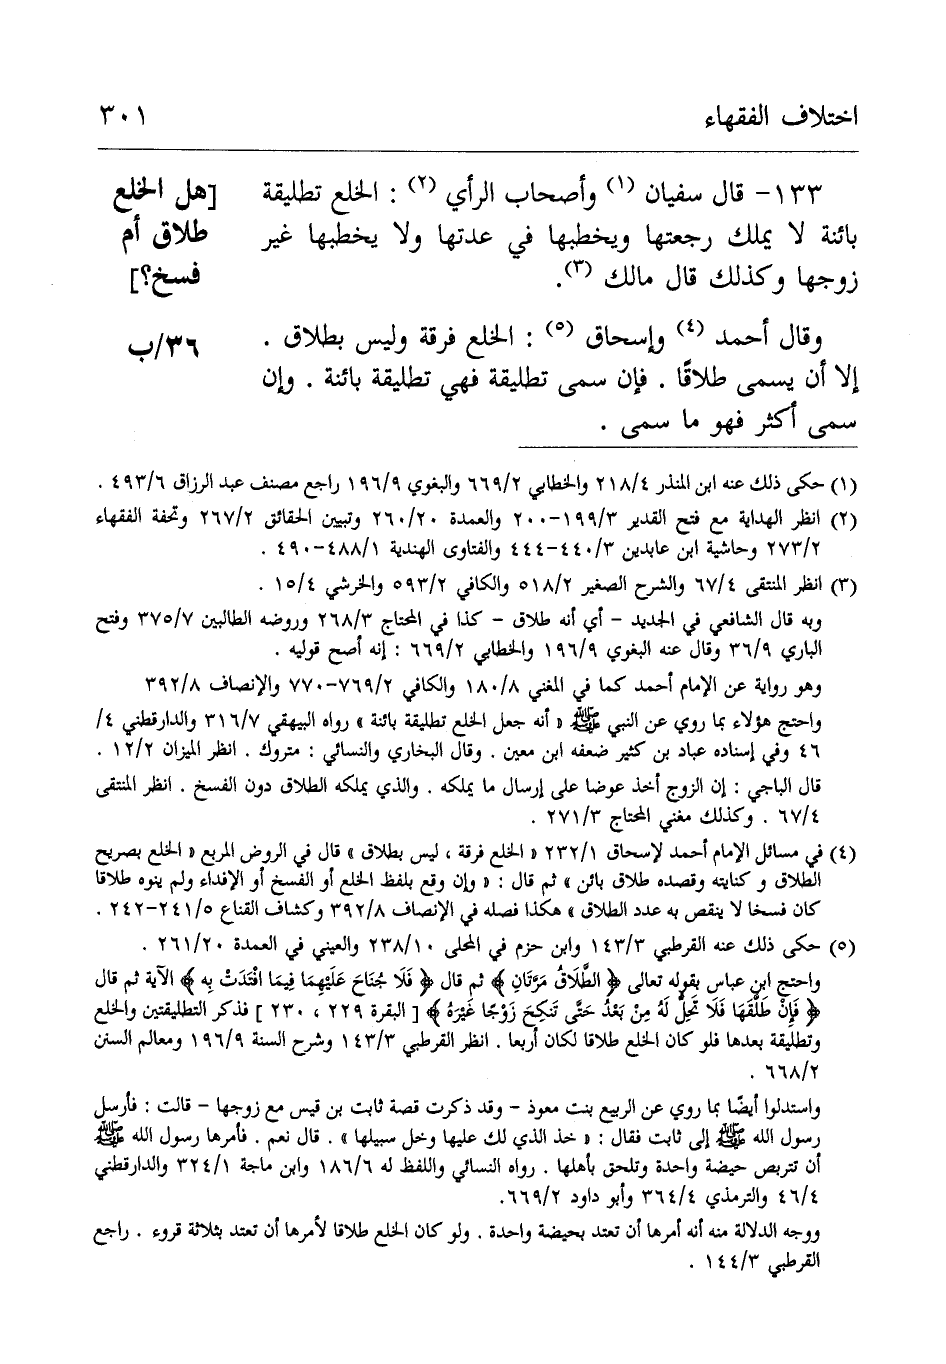 اختلاف الفقهاء ٣٠١
١٣٣- قال سفيان (١) وأصحاب الرأي (٢) : الخلع تطليقة
بائنة لا يملك رجعتها ويخطبها في عدتها ولا يخطبها غير
زوجها وكذلك قال مالك (٣).
[هل الخلع
طلاق أم
فسخ؟]
وقال أحمد (٤) وإسحاق (٥) : الخلع فرقة وليس بطلاق .
إلا أن يسمى طلاقًا . فإن سمى تطليقة فهي تطليقة بائنة . وإن
سمى أكثر فهو ما سمى .
٣٦/ب
(١) حكى ذلك عنه ابن المنذر ٢١٨/٤ والخطابي ٦٦٩/٢ والبغوي ١٩٦/٩ راجع مصنف عبد الرزاق ٤٩٣/٦ .
(٢) انظر الهداية مع فتح القدير ١٩٩/٣-٢٠٠ والعمدة ٢٦٠/٢٠ وتبيين الحقائق ٢٦٧/٢ وتحفة الفقهاء
٢٧٣/٢ وحاشية ابن عابدين ٤٤٠/٣-٤٤٤ والفتاوى الهندية ٤٨٨/١-٤٩٠ .
(٣) انظر المنتقى ٦٧/٤ والشرح الصغير ٥١٨/٢ والكافي ٥٩٣/٢ والخرشي ١٥/٤ .
وبه قال الشافعي في الجديد - أي أنه طلاق - كذا في المحتاج ٢٦٨/٣ وروضه الطالبين ٣٧٥/٧ وفتح
الباري ٣٦/٩ وقال عنه البغوي ١٩٦/٩ والخطابي ٦٦٩/٢ : إنه أصح قوليه .
وهو رواية عن الإمام أحمد كما في المغني ١٨٠/٨ والكافي ٧٦٩/٢-٧٧٠ والإنصاف ٣٩٢/٨
واحتج هؤلاء بما روي عن النبي ﷺ « أنه جعل الخلع تطليقة بائنة » رواه البيهقي ٣١٦/٧ والدارقطني ٤/
٤٦ وفي إسناده عباد بن كثير ضعفه ابن معين . وقال البخاري والنسائي : متروك . انظر الميزان ١٢/٢ .
قال الباجي : إن الزوج أخذ عوضا على إرسال ما يملكه . والذي يملكه الطلاق دون الفسخ . انظر المنتقى
٦٧/٤ . وكذلك مغني المحتاج ٢٧١/٣ .
(٤) في مسائل الإمام أحمد لإسحاق ٢٣٢/١ « الخلع فرقة ، ليس بطلاق » قال في الروض المربع « الخلع بصريح
الطلاق و كنايته وقصده طلاق بائن » ثم قال : « وإن وقع بلفظ الخلع أو الفسخ أو الإفداء ولم ينوه طلاقا
كان فسخا لا ينقص به عدد الطلاق » هكذا فصله في الإنصاف ٣٩٢/٨ وكشاف القناع ٢٤١/٥-٢٤٢ .
(٥) حكى ذلك عنه القرطبي ١٤٣/٣ وابن حزم في المحلى ٢٣٨/١٠ والعيني في العمدة ٢٦١/٢٠ .
واحتج ابن عباس بقوله تعالى ﴿ الطَّلَاقُ مَرَّتَانِ ﴾ ثم قال ﴿ فَلَا جُنَاحَ عَلَيْهِمَا فِيمَا افْتَدَتْ بِهِ ﴾ الآية ثم قال
﴿ فَإِنْ طَلَّقَهَا فَلَا تَحِلُّ لَهُ مِنْ بَعْدُ حَتَّى تَنكِحَ زَوْجًا غَيْرَهُ ﴾ [ البقرة ٢٢٩ ، ٢٣٠ ] فذكر التطليقتين والخلع
وتطليقة بعدها فلو كان الخلع طلاقا لكان أربعا . انظر القرطبي ١٤٣/٣ وشرح السنة ١٩٦/٩ ومعالم السنن
٦٦٨/٢ .
واستدلوا أيضًا بما روي عن الربيع بنت معوذ - وقد ذكرت قصة ثابت بن قيس مع زوجها - قالت : فأرسل
رسول الله ﷺ إلى ثابت فقال : « خذ الذي لك عليها وخل سبيلها » . قال نعم . فأمرها رسول الله ﷺ
أن تتربص حيضة واحدة وتلحق بأهلها . رواه النسائي واللفظ له ١٨٦/٦ وابن ماجة ٣٢٤/١ والدارقطني
٤٦/٤ والترمذي ٣٦٤/٤ وأبو داود ٦٦٩/٢.
ووجه الدلالة منه أنه أمرها أن تعتد بحيضة واحدة . ولو كان الخلع طلاقا لأمرها أن تعتد بثلاثة قروء . راجع
القرطبي ١٤٤/٣ .